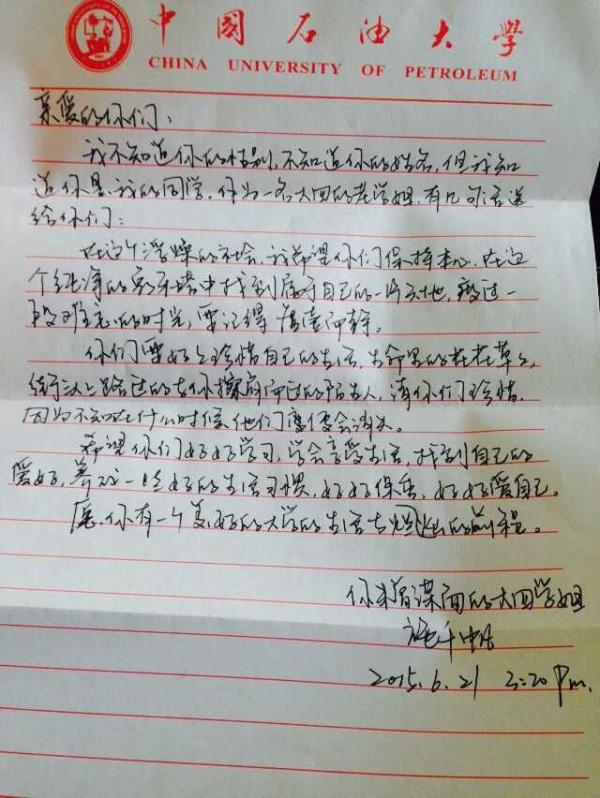 中国石油大学
CHINA UNIVERSITY OF PETROLEUM
亲爱的你们:
我不知道你的性别,不知道你的姓名,但我知
道你是我的同学,作为一名大四的老学姐,有几句话送
给你们:
在这个浮躁的社会,我希望你们保持本心,在这
个纯净的象牙塔中找到属于自己的一片天地,度过一
段难忘的时光,要记得 厚
你们要好好珍惜自己的生活,生命里的花花草草,
街头上路过的与你擦肩而过的陌生人,请你们珍惜,
因为不知在什么时候他们便会消失。
希望你们好好学习,学会享受生活,找到自己的
爱好,养成一些好的生活习惯,好好保重,好好爱自己。
愿你有一个美好的大学的生活与灿烂的前程。
你未曾谋面的大四学姐
2015.6.21 3:20 Pm.